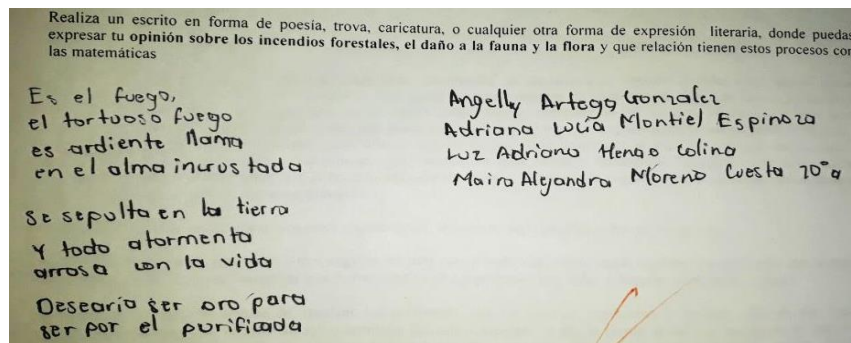 Realiza un escrito en forma de poesía, trova, caricatura, o cualquier otra forma de expresión literaria, donde puedas
expresar tu opinión sobre los incendios forestales, el daño a la fauna y la flora y que relación tienen estos procesos con
las matemáticas
Es el fuego,
el tortuoso fuego
es ardiente llama
en el alma incrustada
se sepulta en la tierra
y todo atormenta
arrosa con la vida
Desearía ser oro para
ser por el purificada
Angelly Artega Gonzalez
Adriana Lucía Montiel Espinoza
Luz Adriana Henao Colina
Maira Alejandra Moreno Cuesta 10°a